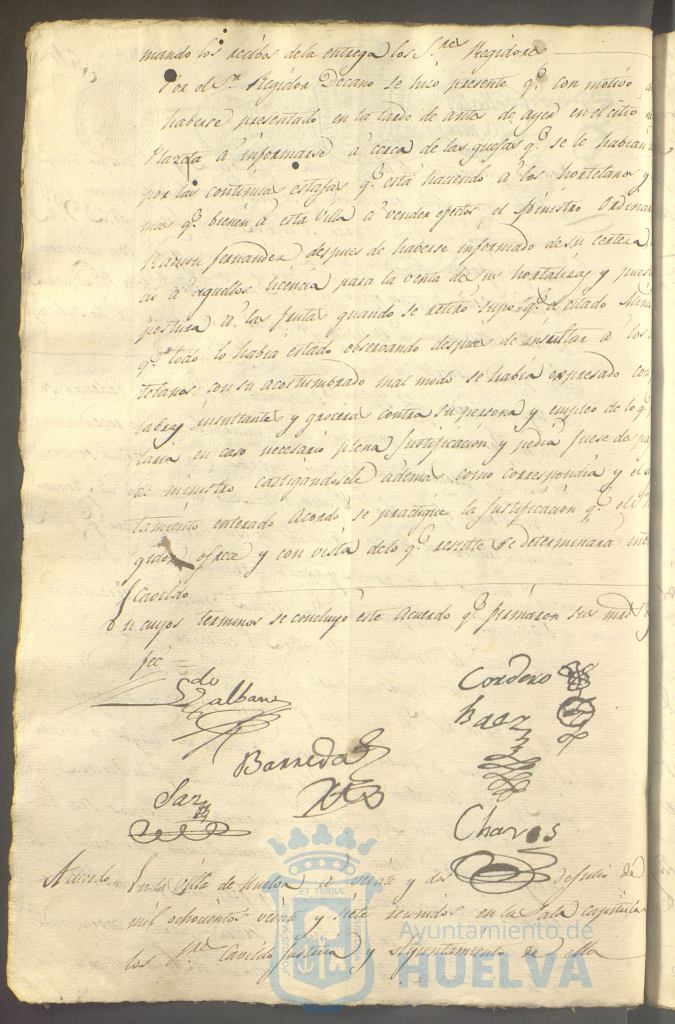 mando los recibos de la entrega los S.res Regidores
Por el S.r Regidor Decano se hizo presente q.e con motivo
haberse presentado en la tarde de antes de ayer en el citio
Plazeta á informarse á cerca de las quejas q.e se le habian
por las continuas estafas q.e está haciendo á los hortelanos y
mas q.e bienen á esta Villa á vender efectos el Ministro Ordena
Ramon Fernandez despues de haberse informado de su certeza
do á aquellos licencia para la venta de sus hortalizas y pues
postura á las frutas quando se retiró supo q.e el citado Mini
q.e todo lo habia estado observando despues de insultar á los
telanos con su acostumbrado mal modo se habia expresado con
labras insultantes y groceras contra su persona y empleo de lo q.e
taria en caso necesario plena justificacion y pedia fuese de
ministro castigandosele ademas como correspondia y el
tamiento enterado acordó se practique la justificacion q.e el
gidor ofrece y con vista de lo q.e resulte se determinará
Cavildo
En cuyos terminos se concluyó este Acuerdo q.e firmaron sus mrds
feé =
Cordero
Galban
Baez
Barreda
Saz
Chaves
Acuerdo = En la Villa de Huelva á veinte y dos de Julio de
mil ochocientos veinte y siete reunidos en la Sala capitula
los S.res Cavildo Justicia y Ayuntamiento de ella
ET TERRAE
Ayuntamiento de
HUELVA